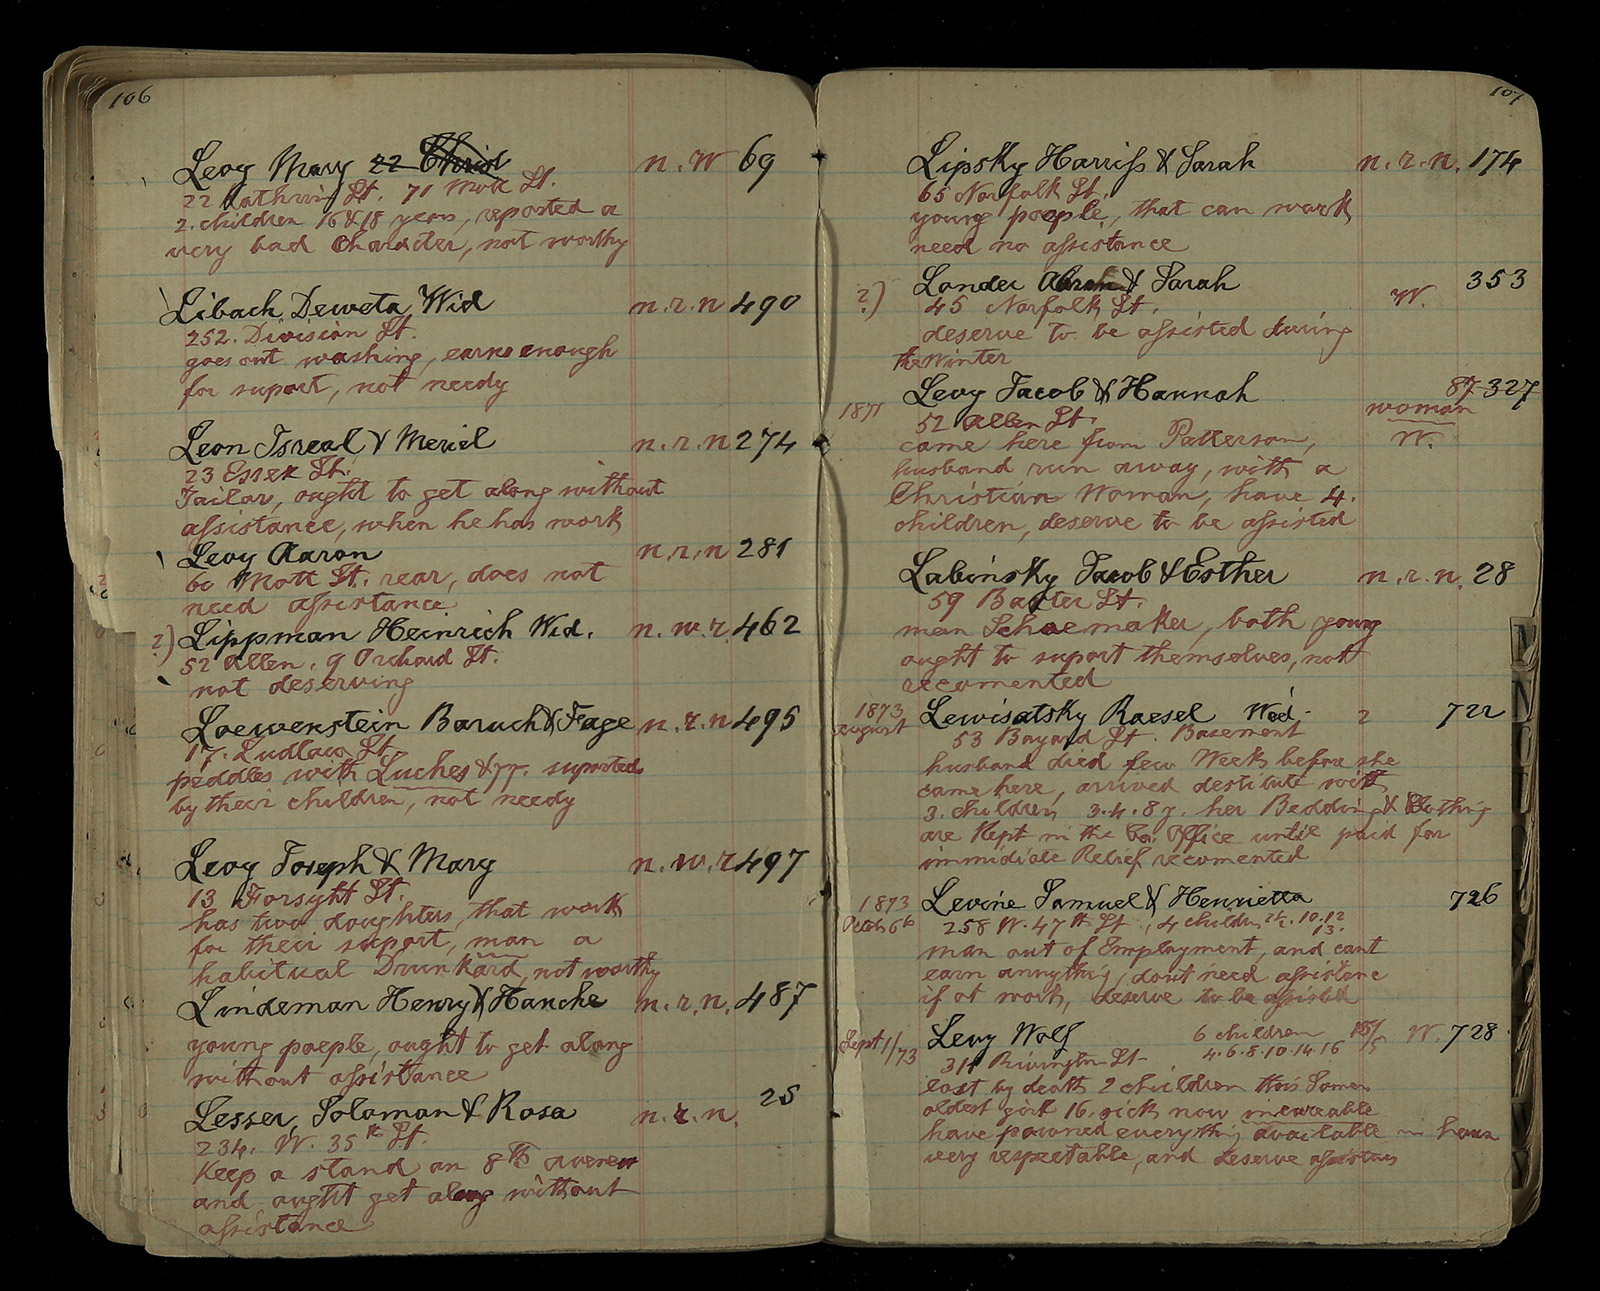 106
Levy Mary 22 n. W 69
22 Cathrin St. 71 Mott St.
2. children 16 & 18 years, reported a
very bad Character, not worthy
Libach Deweta Wid n.r.n 490
252. Division St.
goes out washing, earns enough
for suport, not needy
Leon Isreal & Meriel n.r.n 274
23 Essex St.
Tailor, ought to get along without
assistance, when he has work
Levy Aaron n.r.n 281
60 Mott St. rear, does not
need assistance
2) Lippman Heinrich Wid. n. w. r. 462
52 Allen. 9 Orchard St.
not deserving
Loewenstein Baruch & Fage n.r.n 495
17. Ludlow St.
peddles with Luches & suported
by their children, not needy
Levy Joseph & Mary n. w. r 497
13 Forsyht St.
has two doughters that work
for their suport, man a
habitual Drunkard, not worthy
Lindeman Henry & Hanche n.r.n. 487
young poeple, ought to get along
without assistance
Lesser, Soloman & Rosa n.r.n. 25
234. W. 35th St.
Keep a stand on 8th avenew
and ought get along without
assistance
107
Lipsky Harriss & Sarah n.r.n. 174
65 Norfolk St.
young poeple, that can work
need no assistance
2) Lander & Sarah W. 353
45 Norfolk St.
deserve to be assisted during
the Winter
Levy Jacob & Hannah 87-327
1871 52 Allen St. woman
came here from Patterson, W.
husband run away, with a
Christian Woman, have 4.
children, deserve to be assisted
Labinsky Jacob & Esther n.r.n. 28
59 Baxter St.
man Schoemaker, both young
ought to suport themselves, not
recomented
1873 Lewisatsky Raesel Wed. 2 722
August 53 Bayard St. Basement
husband died few Weeks before she
came here, arrived destitute with
3. children 3.4.8 y. her Bedding & Clothing
are Kept in the Office until paid for
immidiate Relief recomented
1873 Levine Samuel & Henrietta 726
258 W. 47th St. 4 children 2½. 10.12
13.
man out of Employment, and cant
earn annything, dont need assistance
if at work, deserve to be assisted
Levy Wolf 6 children W. 728
Sept 1/73 311 Rivington St 4.6.8.10.14.16
lost by death 2 children this Somer
oldest girl 16. sick now incureable
have pawned everything available in house
very respectable, and deserve assistans